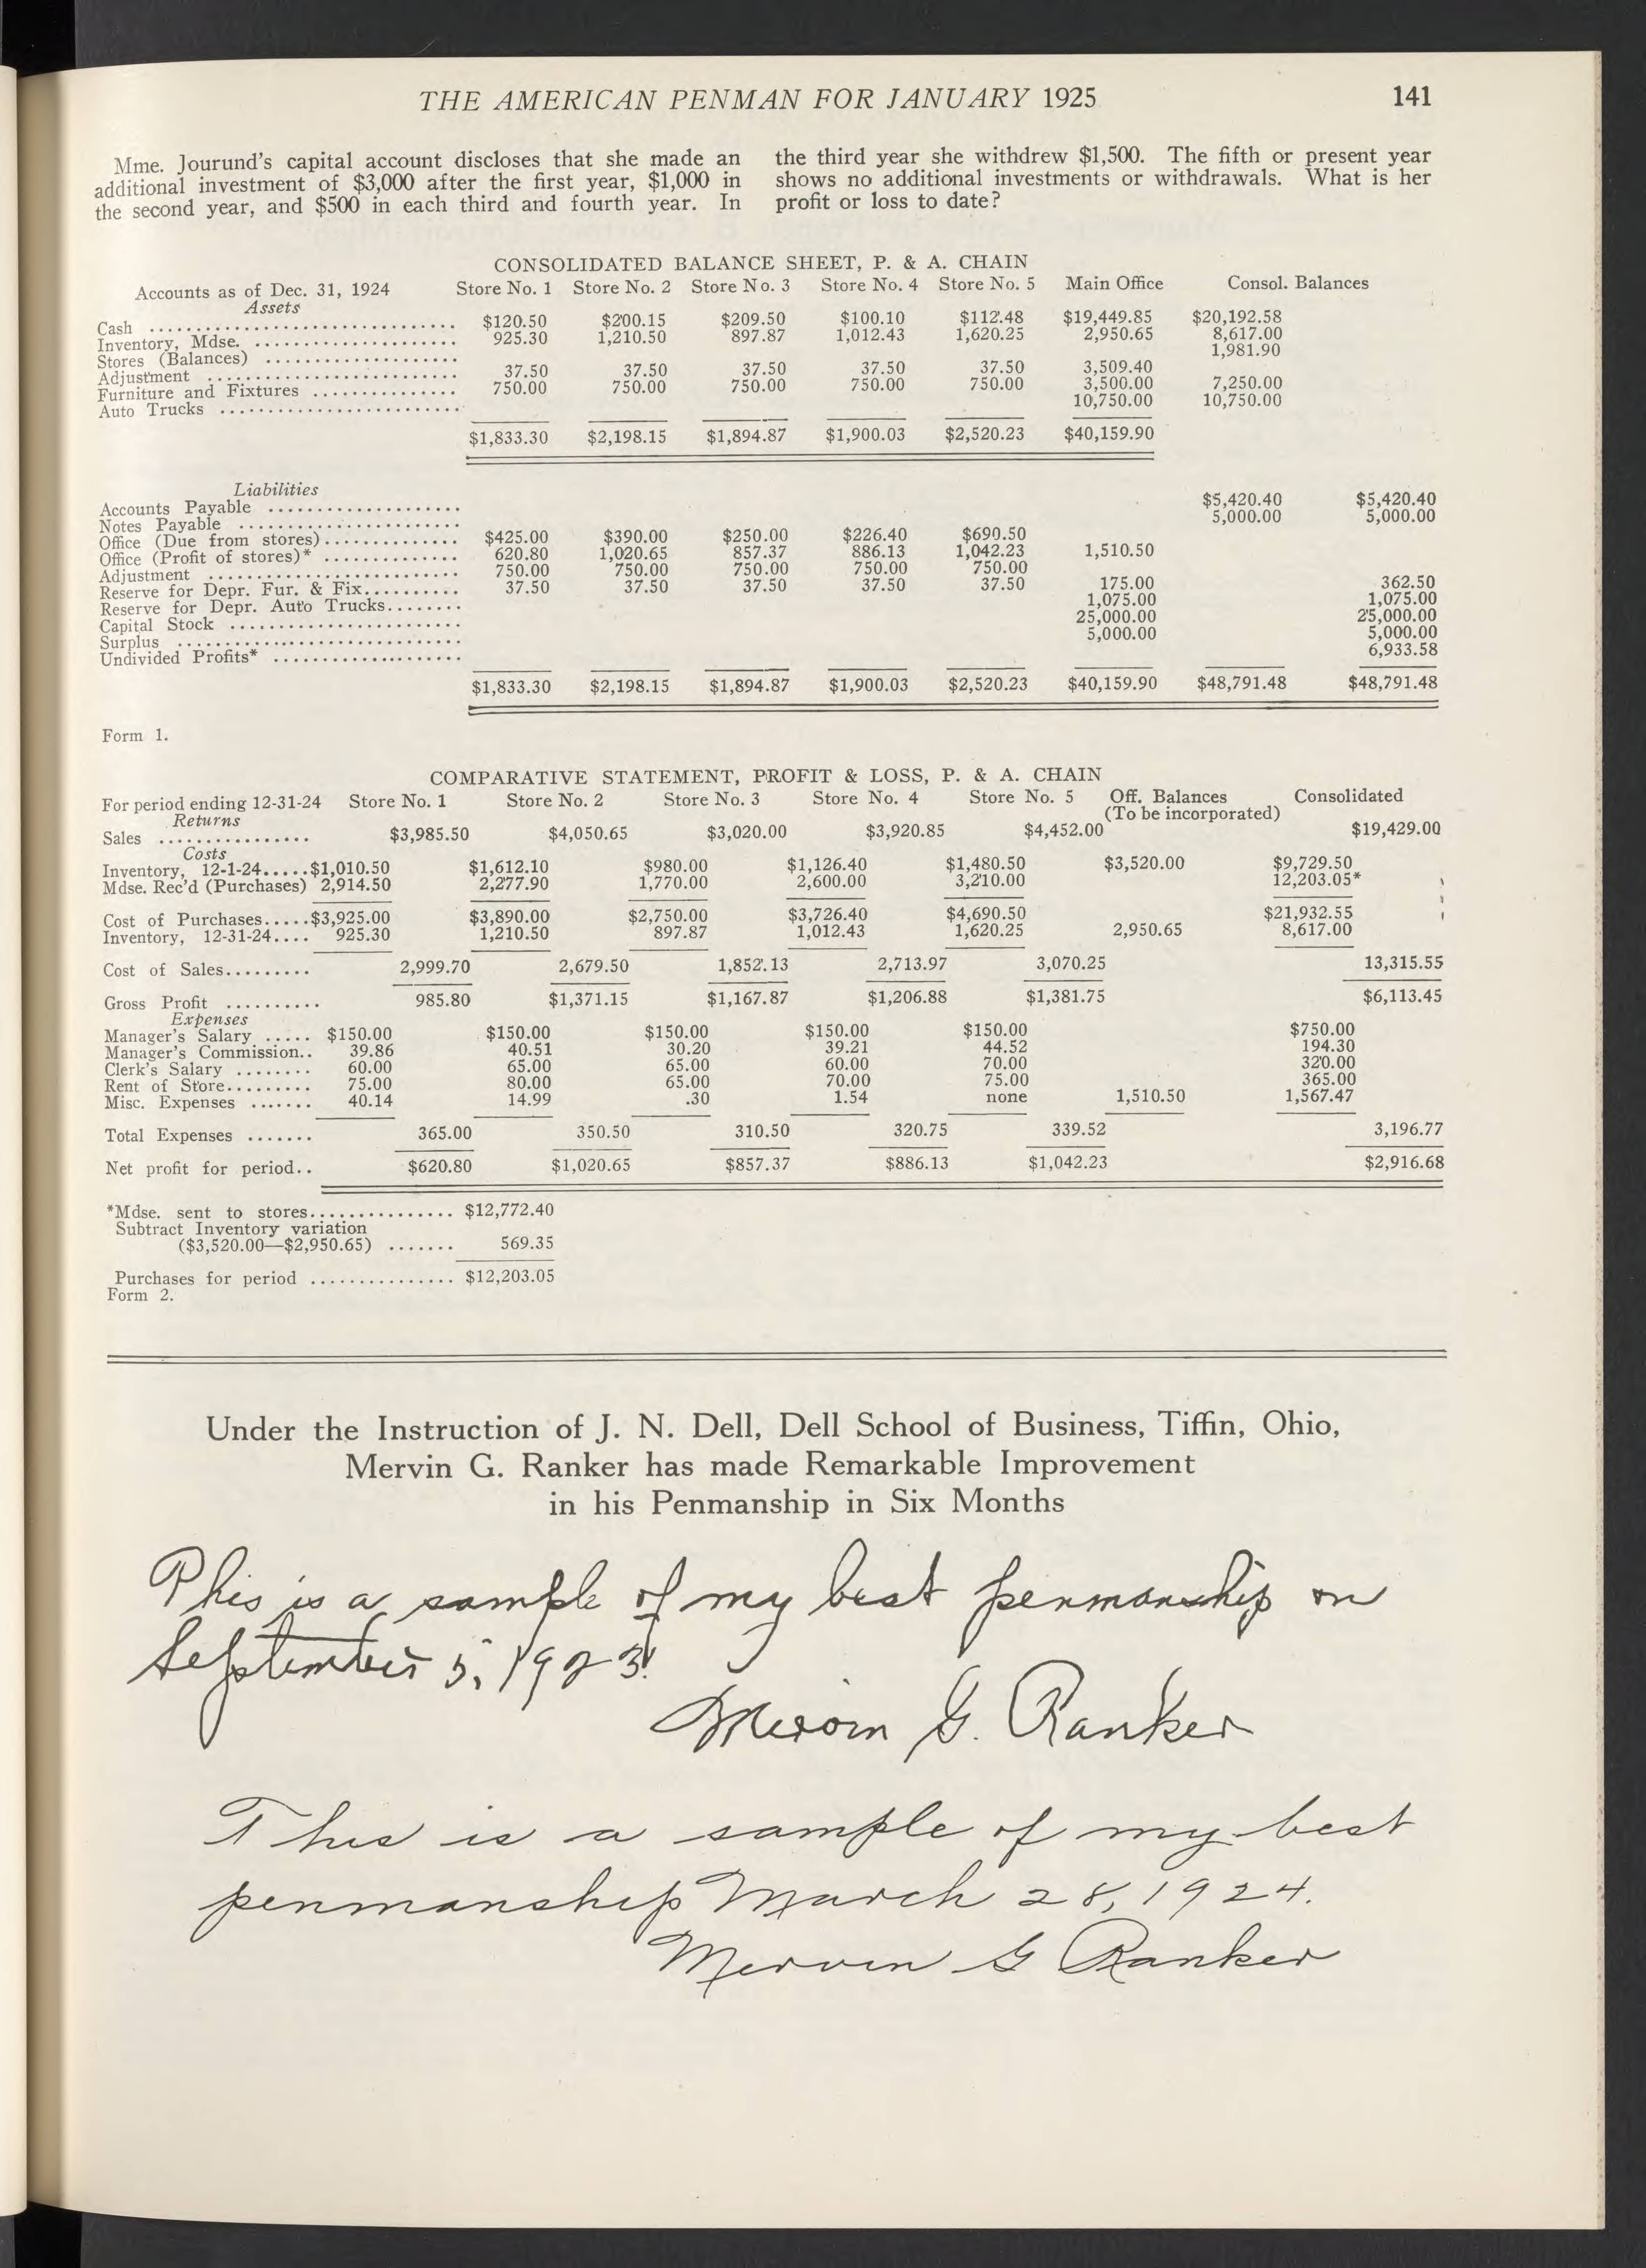 THE AMERICAN PENMAN FOR JANUARY 1925 141
Mme. Jourund's capital account discloses that she made an
additional investment of $3,000 after the first year, $1,000 in
the second year, and $500 in each third and fourth year. In
the third year she withdrew $1,500. The fifth or present year
shows no additional investments or withdrawals. What is her
profit or loss to date?
CONSOLIDATED BALANCE SHEET, P. & A. CHAIN
Accounts as of Dec. 31, 1924 Store No. 1 Store No. 2 Store No. 3 Store No. 4 Store No. 5 Main Office Consol. Balances
Assets
Cash $120.50 $200.15 $209.50 $100.10 $112.48 $19,449.85 $20,192.58
Inventory, Mdse. 925.30 1,210.50 897.87 1,012.43 1,620.25 2,950.65 8,617.00
Stores (Balances) 1,981.90
Adjustment 37.50 37.50 37.50 37.50 37.50 3,509.40
Furniture and Fixtures 750.00 750.00 750.00 750.00 750.00 3,500.00 7,250.00
Auto Trucks 10,750.00 10,750.00
$1,833.30 $2,198.15 $1,894.87 $1,900.03 $2,520.23 $40,159.90
Liabilities
Accounts Payable $5,420.40 $5,420.40
Notes Payable 5,000.00 5,000.00
Office (Due from stores) $425.00 $390.00 $250.00 $226.40 $690.50
Office (Profit of stores)* 620.80 1,020.65 857.37 886.13 1,042.23 1,510.50
Adjustment 750.00 750.00 750.00 750.00 750.00
Reserve for Depr. Fur. & Fix. 37.50 37.50 37.50 37.50 37.50 175.00 362.50
Reserve for Depr. Auto Trucks 1,075.00 1,075.00
Capital Stock 25,000.00 25,000.00
Surplus 5,000.00 5,000.00
Undivided Profits* 6,933.58
$1,833.30 $2,198.15 $1,894.87 $1,900.03 $2,520.23 $40,159.90 $48,791.48 $48,791.48
Form 1.
COMPARATIVE STATEMENT, PROFIT & LOSS, P. & A. CHAIN
For period ending 12-31-24 Store No. 1 Store No. 2 Store No. 3 Store No. 4 Store No. 5 Off. Balances Consolidated
Returns (To be incorporated)
Sales $3,985.50 $4,050.65 $3,020.00 $3,920.85 $4,452.00 $19,429.00
Costs
Inventory, 12-1-24 $1,010.50 $1,612.10 $980.00 $1,126.40 $1,480.50 $3,520.00 $9,729.50
Mdse. Rec'd (Purchases) 2,914.50 2,277.90 1,770.00 2,600.00 3,210.00 12,203.05*
Cost of Purchases $3,925.00 $3,890.00 $2,750.00 $3,726.40 $4,690.50 $21,932.55
Inventory, 12-31-24 925.30 1,210.50 897.87 1,012.43 1,620.25 2,950.65 8,617.00
Cost of Sales 2,999.70 2,679.50 1,852.13 2,713.97 3,070.25 13,315.55
Gross Profit 985.80 $1,371.15 $1,167.87 $1,206.88 $1,381.75 $6,113.45
Expenses
Manager's Salary $150.00 $150.00 $150.00 $150.00 $150.00 $750.00
Manager's Commission.. 39.86 40.51 30.20 39.21 44.52 194.30
Clerk's Salary 60.00 65.00 65.00 60.00 70.00 320.00
Rent of Store 75.00 80.00 65.00 70.00 75.00 365.00
Misc. Expenses 40.14 14.99 .30 1.54 none 1,510.50 1,567.47
Total Expenses 365.00 350.50 310.50 320.75 339.52 3,196.77
Net profit for period.. $620.80 $1,020.65 $857.37 $886.13 $1,042.23 $2,916.68
*Mdse. sent to stores $12,772.40
Subtract Inventory variation
($3,520.00—$2,950.65) 569.35
Purchases for period $12,203.05
Form 2.
Under the Instruction of J. N. Dell, Dell School of Business, Tiffin, Ohio,
Mervin G. Ranker has made Remarkable Improvement
in his Penmanship in Six Months
This is a sample of my best penmanship on
September 5, 1923.
Mervin G. Ranker
This is a sample of my best
penmanship March 28, 1924.
Mervin G Ranker